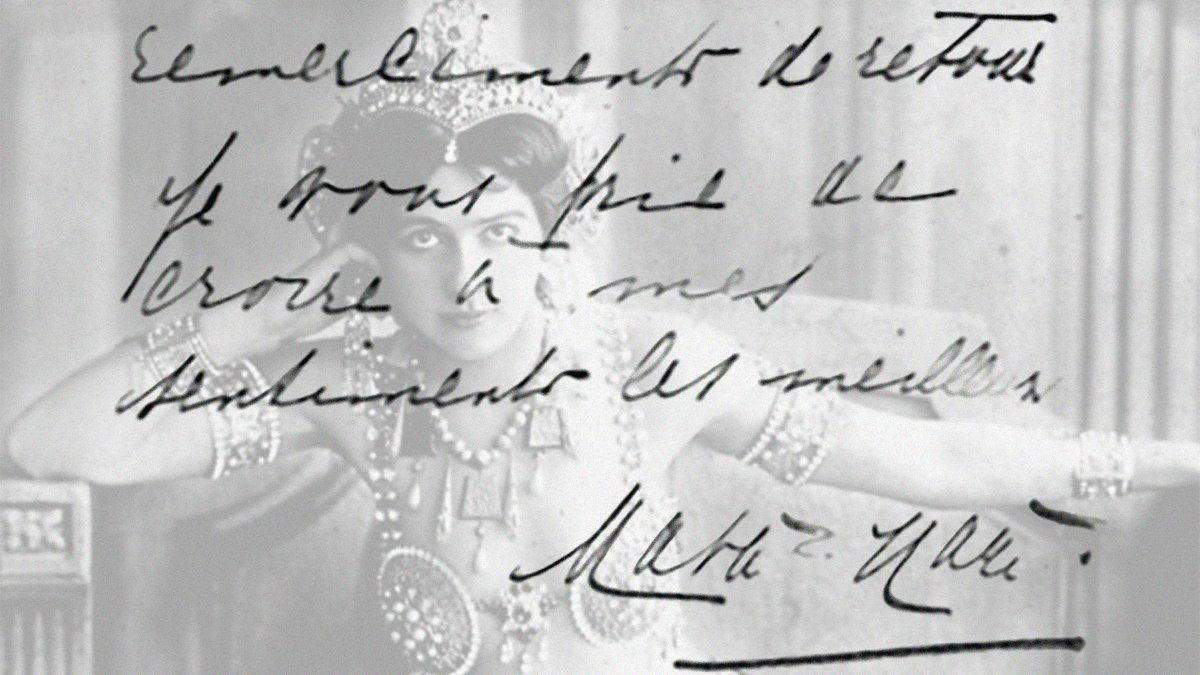 remerciments de retour
Je vous prie de
croire à mes
sentiments les meilleurs
Mata Hari